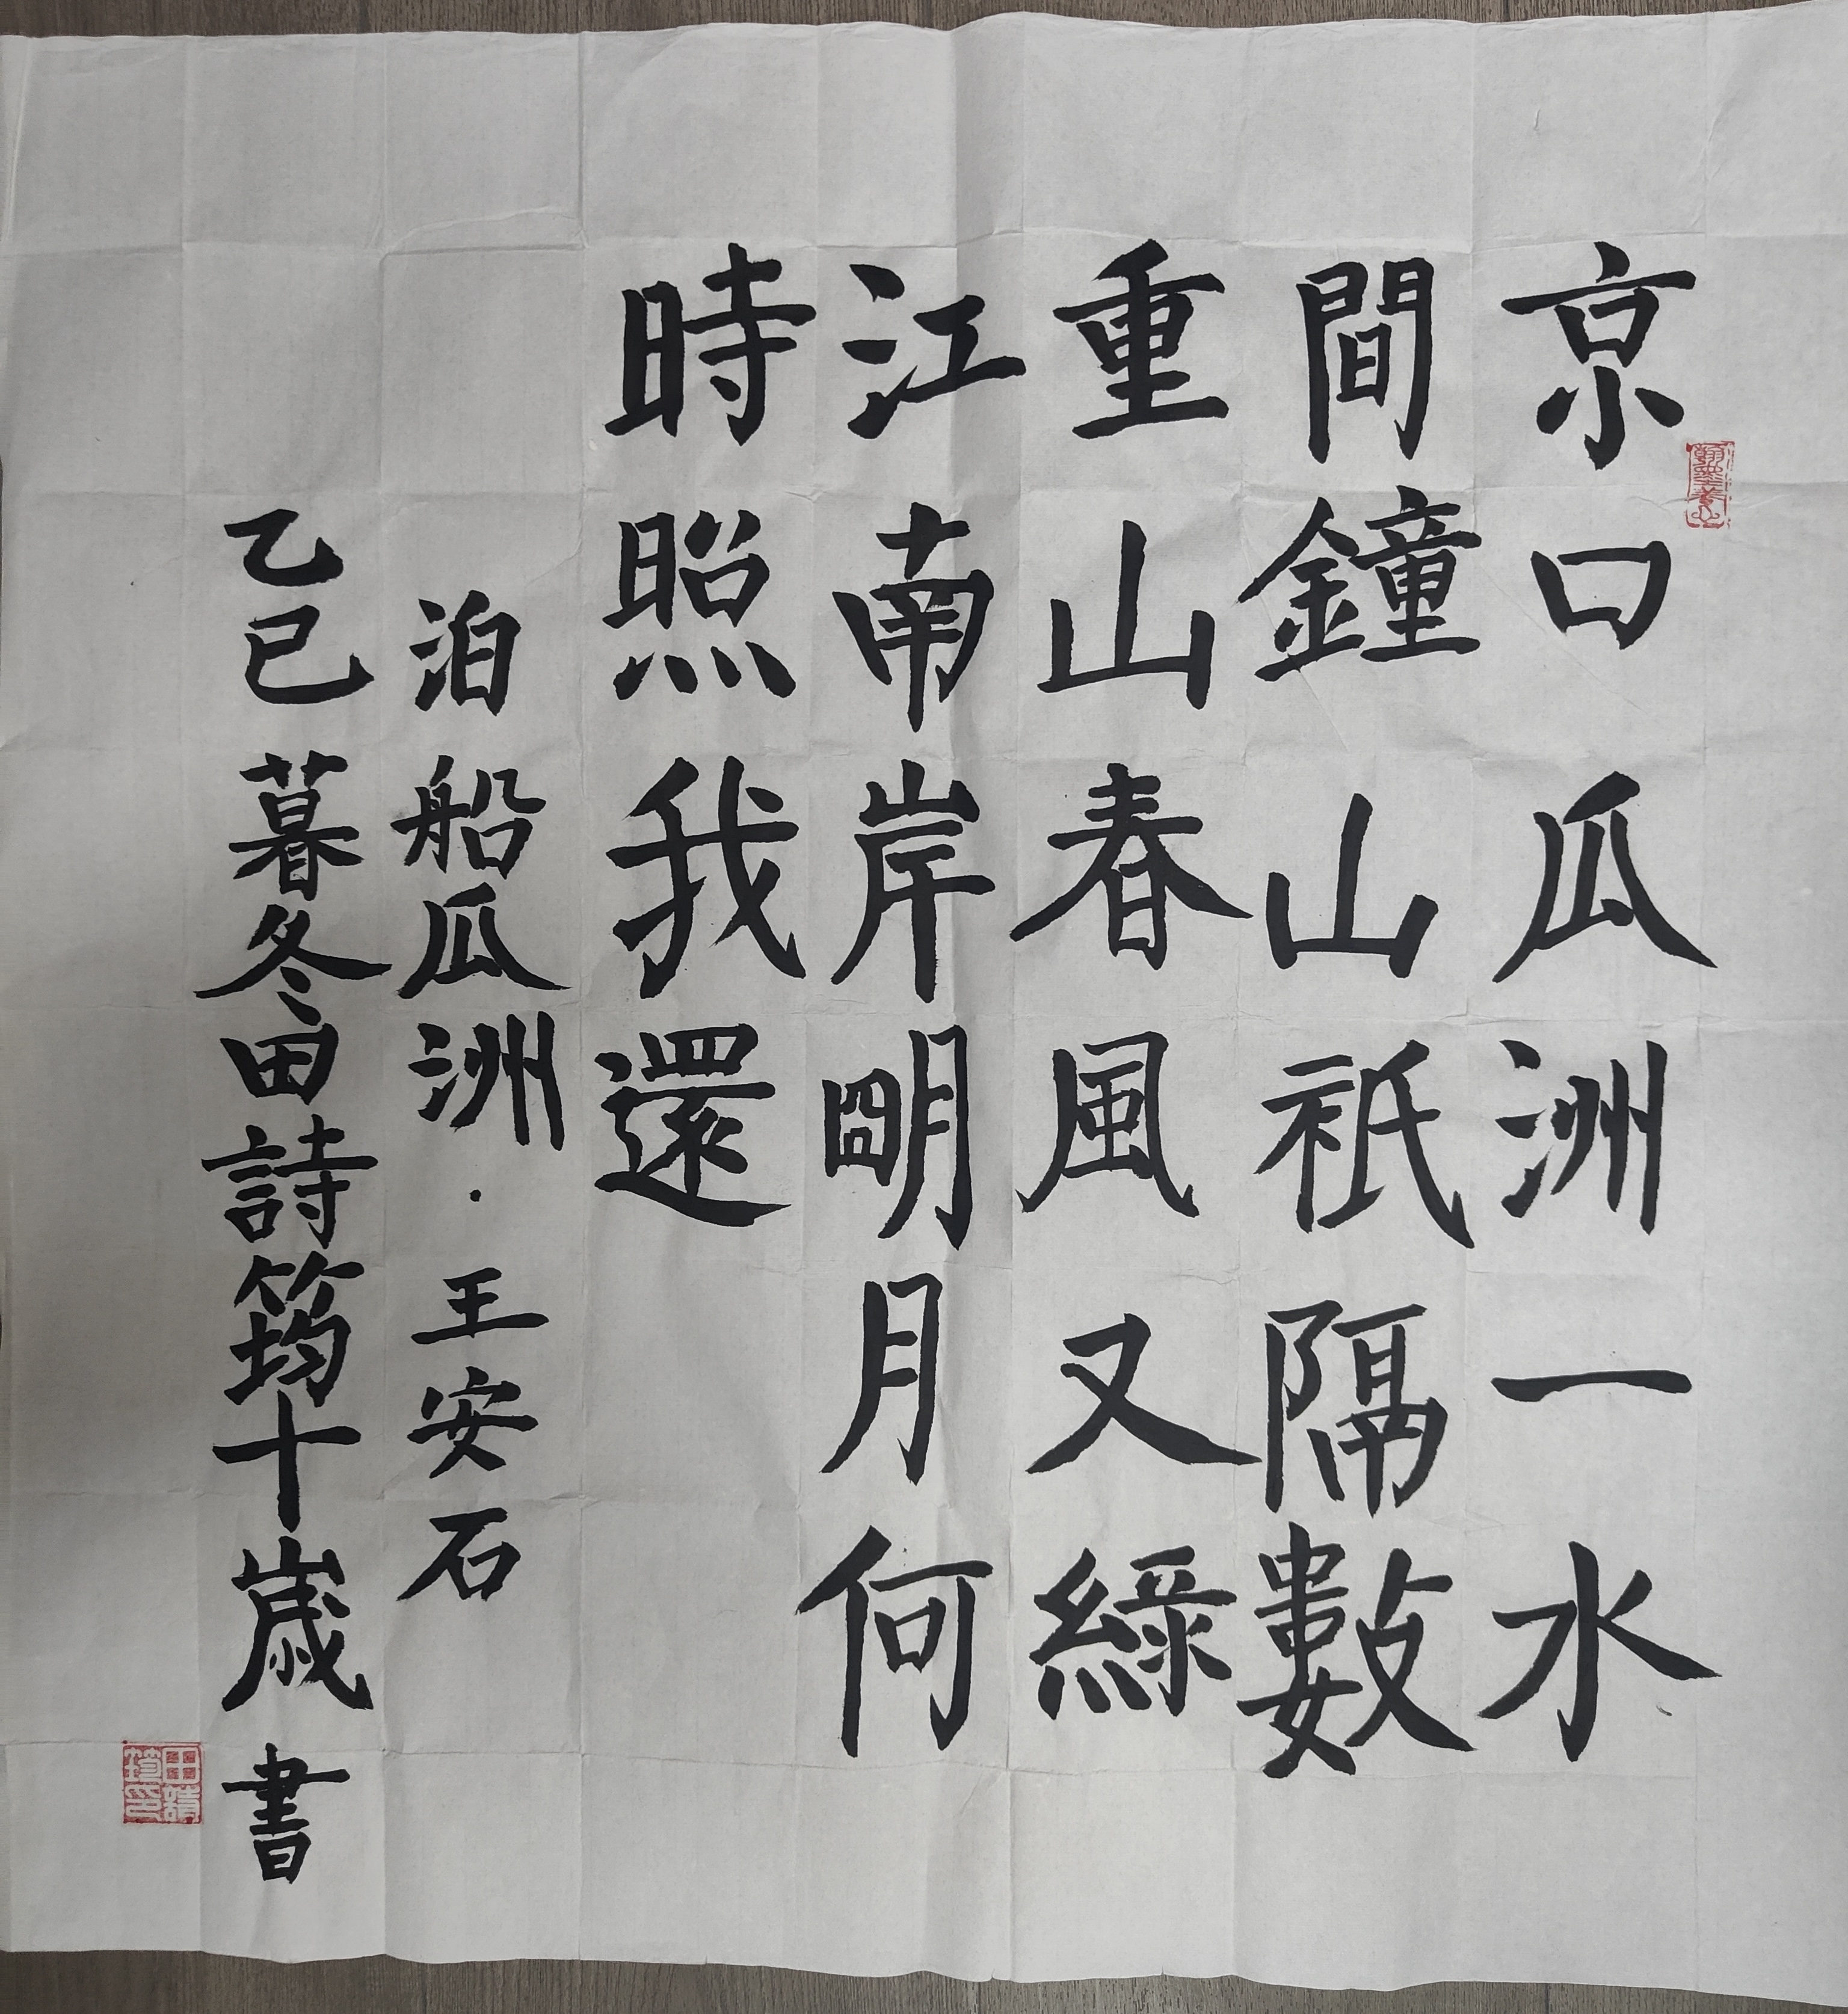 京口瓜洲一水
間鐘山祇隔數
重山春風又綠
江南岸明月何
時照我還
泊船瓜洲·王安石
乙巳暮冬田詩筠十歲書